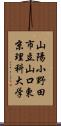 山陽小野田
市立山口東
京理科大学